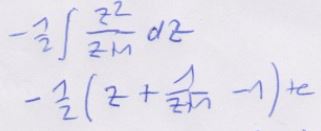 -1/2 ∫ z²/(z+1) dz
-1/2 (z + 1/(z+1) - 1) + c